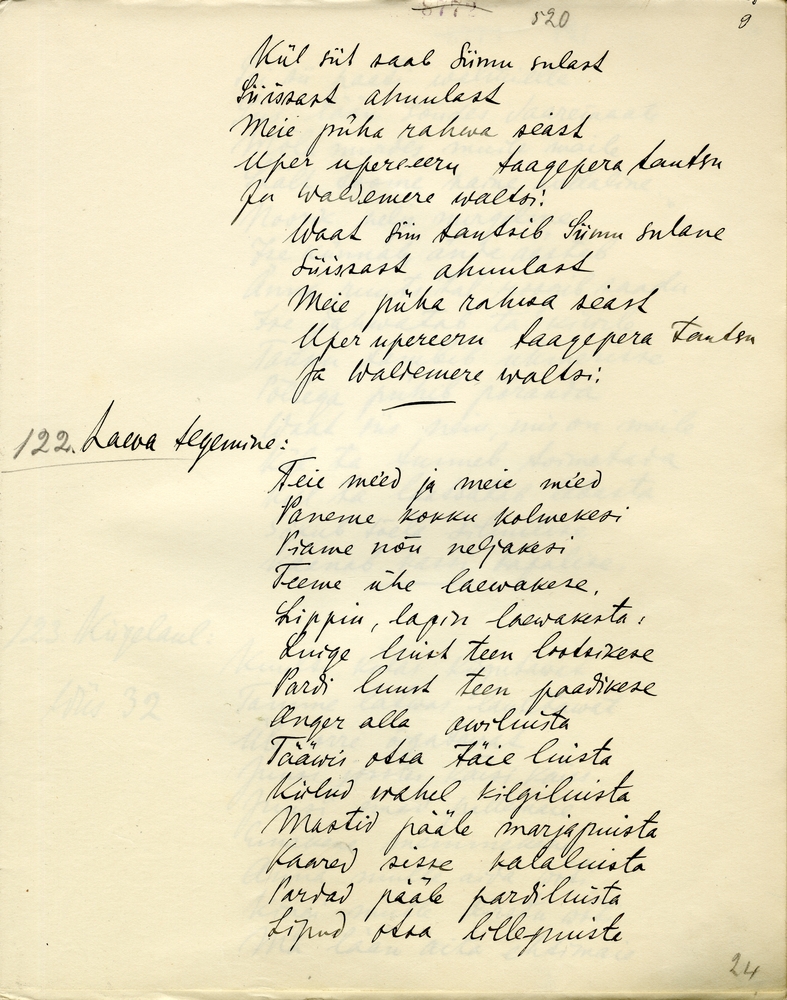 520
9
Kül siit saab Siimu sulast
Süissast ahuulast
Meie püha rahwa seast
Uper upereeru taagepera tantsu
Ja Waldemere waltsi:
Waat siin tantsib Siimu sulane
Süissast ahuulast
Meie püha rahwa seast
Uper upereeru taagepera tantsu
Ja Waldemere waltsi:
122. Laewa tegemine:
Teie meed ja meie meed
Paneme kokku kolmekesi
Piame nõu neljakesi
Teeme ühe laewakese,
Lippiu, lapiu laewakesta:
Luige luust teen lootsikese
Pardi luust teen paadikese
Anger alla awiluista
Tääwis otsa täie luista
Küllud wahel kilgiluista
Mastid pääle marjapuista
Kaared sisse kalaluista
Pardad pääle pardiluista
Lipud otsa lillepuista
24